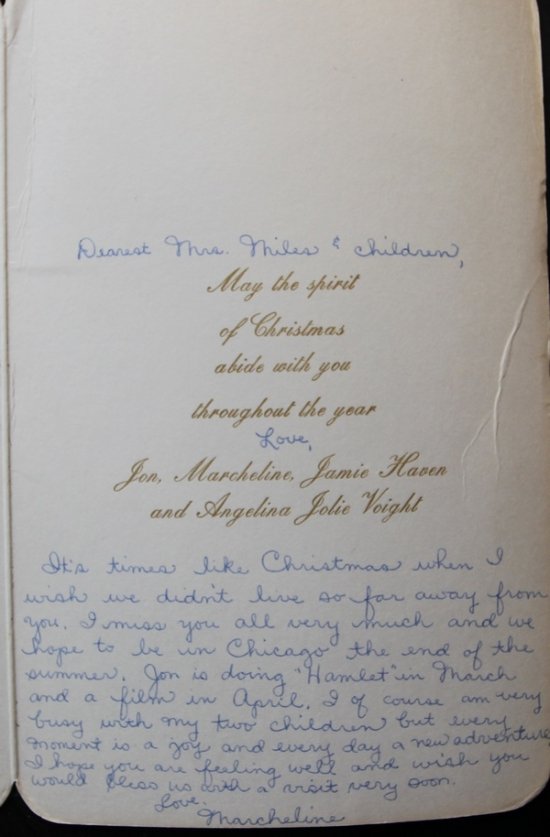 Dearest Mrs. Miles & children,
May the spirit
of Christmas
abide with you
throughout the year
Love,
Jon, Marcheline, Jamie Haven
and Angelina Jolie Voight
It's times like Christmas when I
wish we didn't live so far away from
you. I miss you all very much and we
hope to be in Chicago the end of the
summer. Jon is doing "Hamlet" in March
and a film in April. I of course am very
busy with my two children but every
moment is a joy and every day a new adventure
I hope you are feeling well and wish you
would bless us with a visit very soon.
Love.
Marcheline